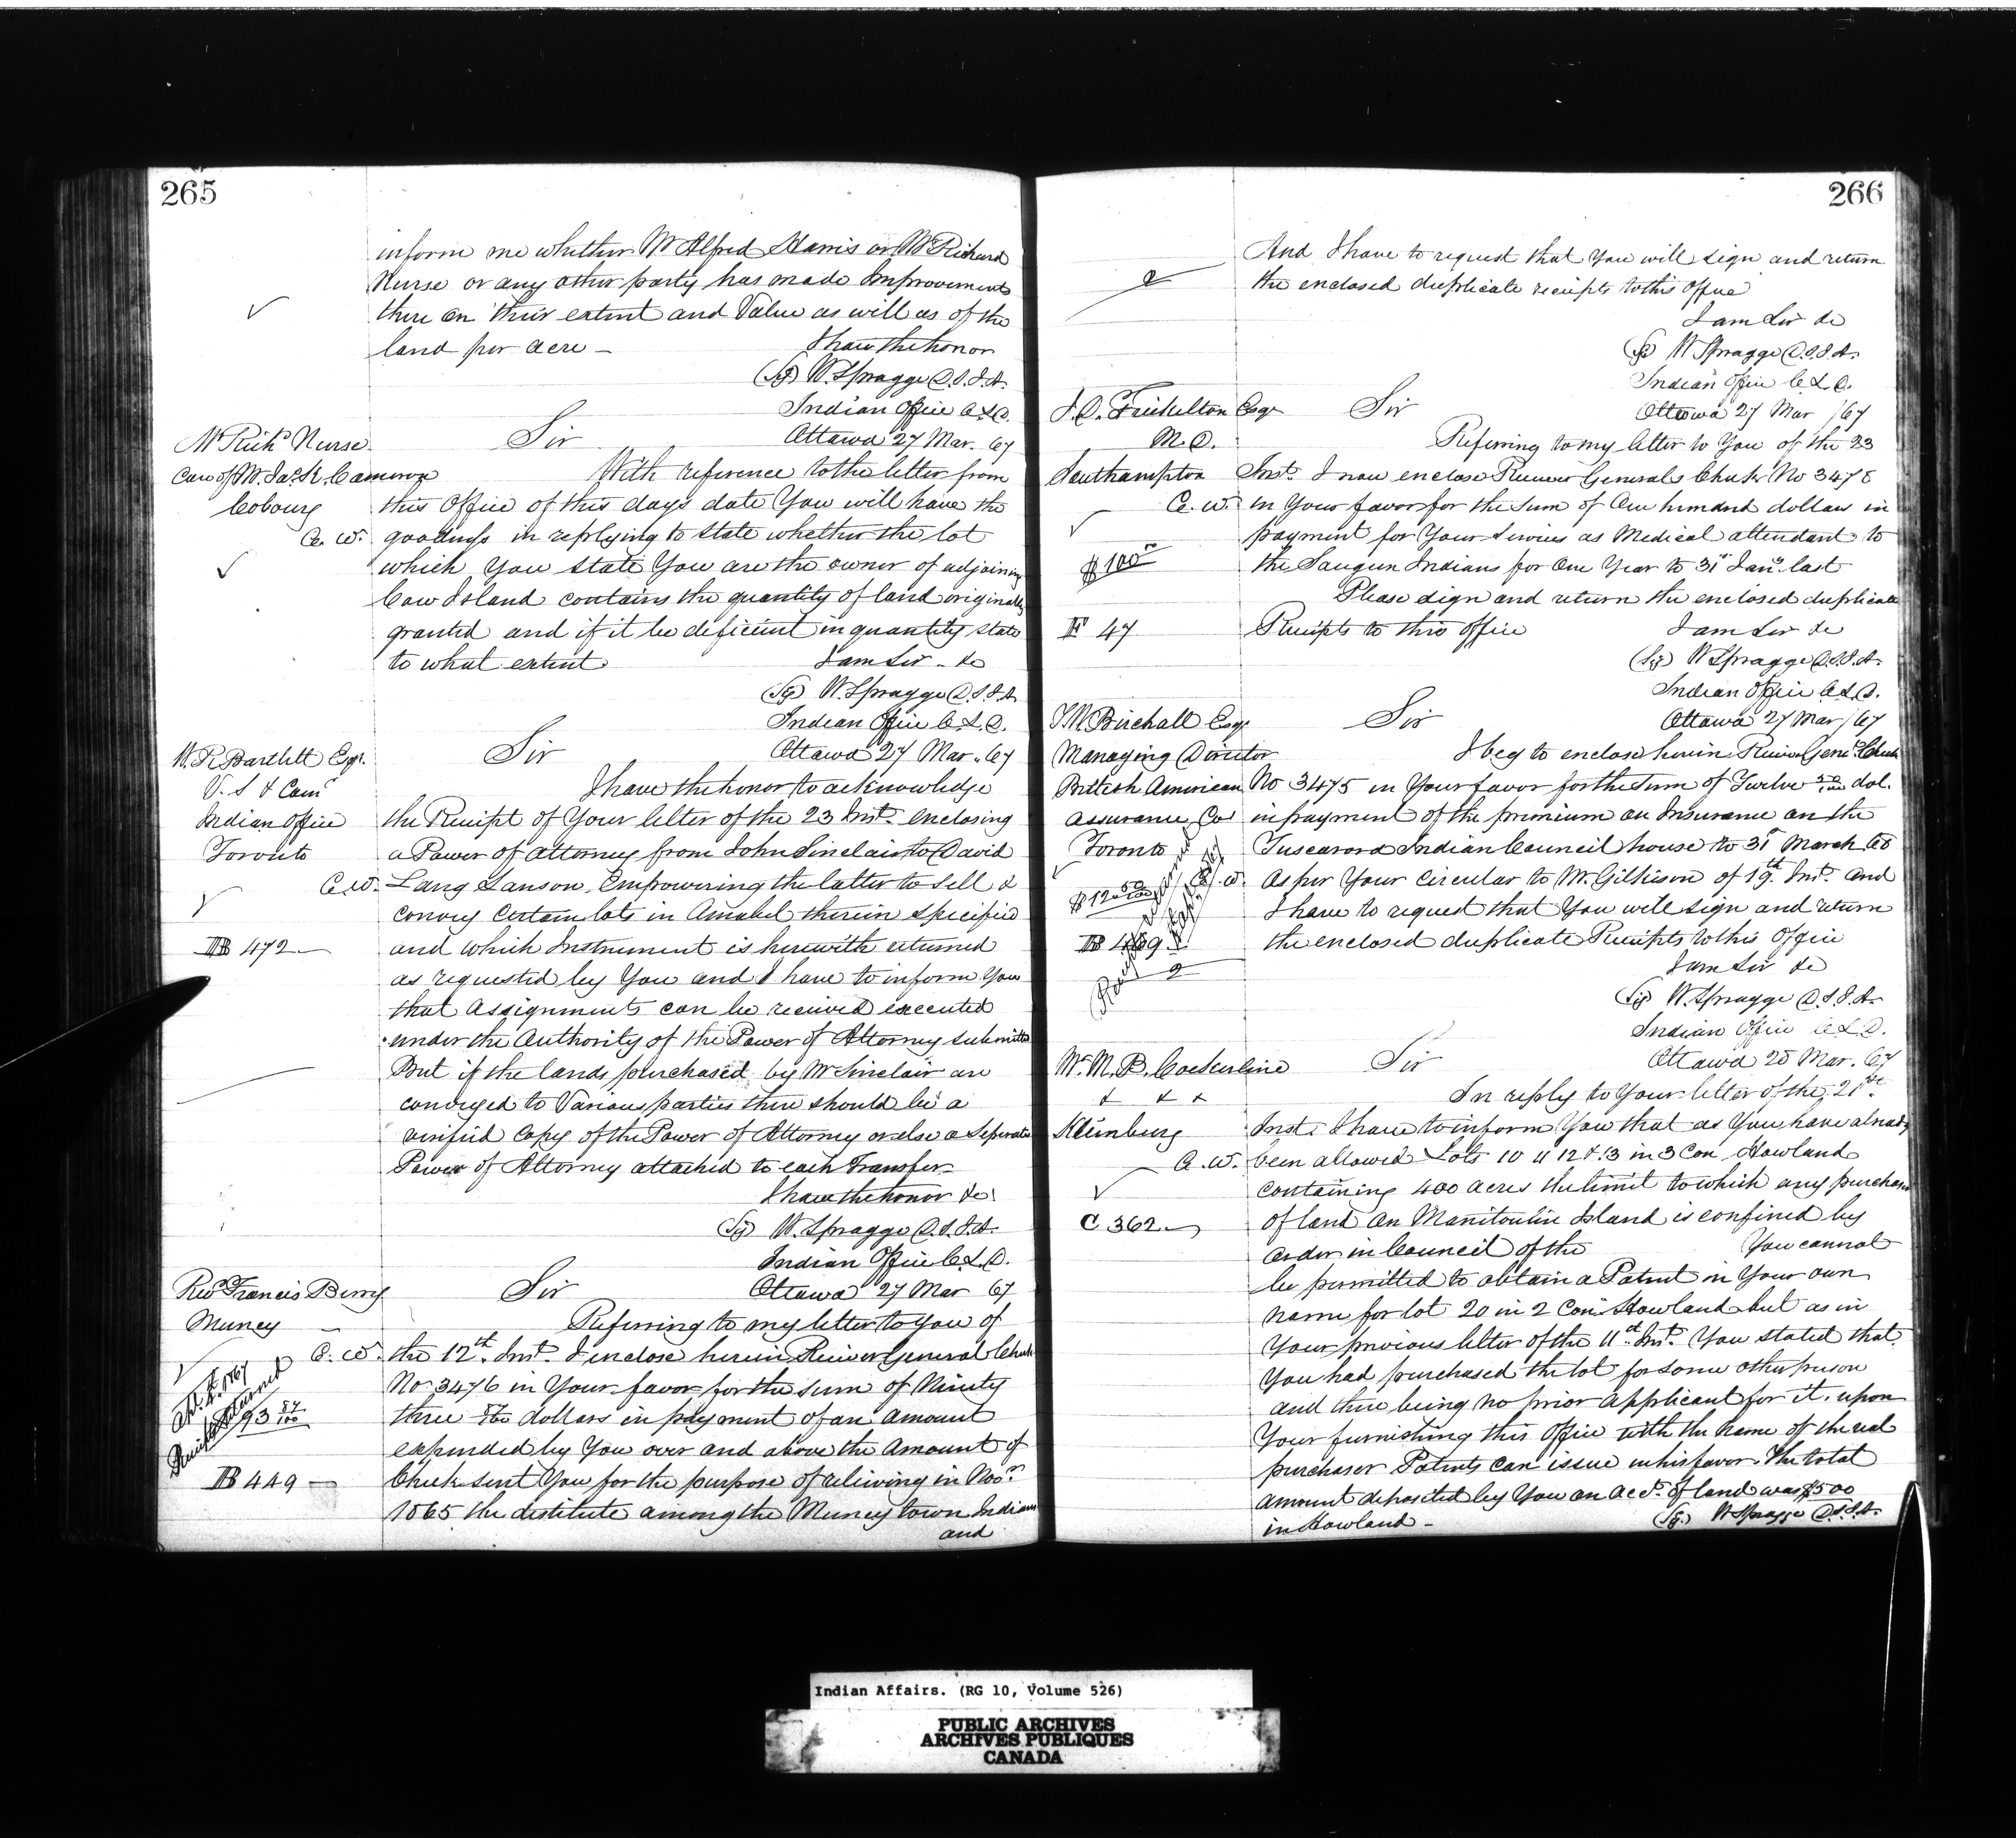 265
inform me whether Mr Alfred Harris or Mr Richard
Nurse or any other party has made Improvements
there on their extent and Value as will as of the
land per acre – I have the honor
(Sg) W. Spragge D.S.I.A.
Indian Office C.L.D.
Mr Richd Nurse Sir Ottawa 27 Mar. 67
Care of Mr Jas. R. Cameron With reference to the letter from
Cobourg this Office of this days date You will have the
C. W. goodness in replying to state whether the lot
which You state You are the owner of adjoining
Cow Island contains the quantity of land originally
granted and if it be deficient in quantity state
to what extent I am Sir – &c
(Sg) W. Spragge D.S.I.A.
Indian Office C.L.D.
W. R. Bartlett Esqr. Sir Ottawa 27 Mar. 67
V. S & Comr I have the honor to acknowledge
Indian Office the Receipt of Your letter of the 23 Inst. enclosing
Toronto a Power of Attorney from John Sinclair to David
C.W. Lang Sanson Empowering the latter to Sell &
convey Certain lots in Amabel therein specified
B 472 and which Instrument is herewith returned
as requested by You and I have to inform You
that Assignments can be received executed
under the Authority of the Power of Attorney submitted
But if the lands purchased by Mr Sinclair are
conveyed to Various parties there should be a
verified Copy of the Power of Attorney or else a Seperate
Power of Attorney attached to each Transfer
I have the honor &c
(Sg) W. Spragge D.S.I.A.
Indian Office C.L.D.
Revd Francis Berry Sir Ottawa 27 Mar 67
Muncy – Referring to my letter to You of
C. W. the 12th. Inst. I enclose herein Receiver General Check
No 3476 in Your favor for the sum of Ninety
93 87/100 three 87/100 dollars in payment of an amount
Receipts returned
expended by You over and above the Amount of
B 449 – Check sent You for the purpose of reliving in Novr.
1865 the destitute among the Muncey town Indians
and
266
And I have to request that You will sign and return
the enclosed duplicate receipts to this Office
I am Sir &c
(Sg) W Spragge D.S.I.A.
Indian Office C.L.D.
Esqr Sir Ottawa 27 Mar /67
M. D. Referring to my letter to You of the 23
Southampton Inst. I now enclose Receiver Generals Check No 3478
C. W. in Your favor for the Sum of One hundred dollars in
payment for Your Services as Medical attendant to
$100 the Saugeen Indians for One Year to 31st Jany. last
Please sign and return the enclosed duplicate
F 47 Receipts to this office I am Sir &c
(Sg) W Spragge D.S.I.A.
Indian Office C.L.D.
T. W. Birchall Esqr Sir Ottawa 27 Mar /67
Managing Director I beg to enclose herein Receiver Genl. Check
British American No 3475 in Your favor for the Sum of Twelve 50/100 dol.
Assurance Co in payment of the premium on Insurance on the
Toronto Tuscarora Indian Council house to 31st March 68
C. W. As per Your Circular to Mr. Gilkison of 19th. Inst. And
$12 50/100 I have to request that You will sign and return
the enclosed duplicate Receipts to this Office
I am Sir &c
(Sg) W. Spragge D.S.I.A.
Indian Office C.L.D.
Sir Ottawa 28 Mar. 67
& & & In reply to Your letter of the 21st
Kleinburg Inst. I have to inform You that as You have already
C. W. been allowed Lots 10 11 12 & 13 in 3 Con Howland
containing 400 acres the limit to which any purchase
C 362 of land on Manitoulin Island is confined by
order in Council of the You cannot
be permitted to obtain a Patent in Your own
name for lot 20 in 2 Con Howland but as in
Your previous letter of the 11th Inst. You stated that
You had purchased the lot for some other person
and there being no prior applicant for it. upon
Your furnishing this Office with the name of the real
purchaser Patents can issue in his favor. The total
amount deposited by You on acct. of land was $500
in Howland – (Sg.) W Spragge D.S.I.A.
Indian Affairs. (RG 10, Volume 526)
PUBLIC ARCHIVES
ARCHIVES PUBLIQUES
CANADA